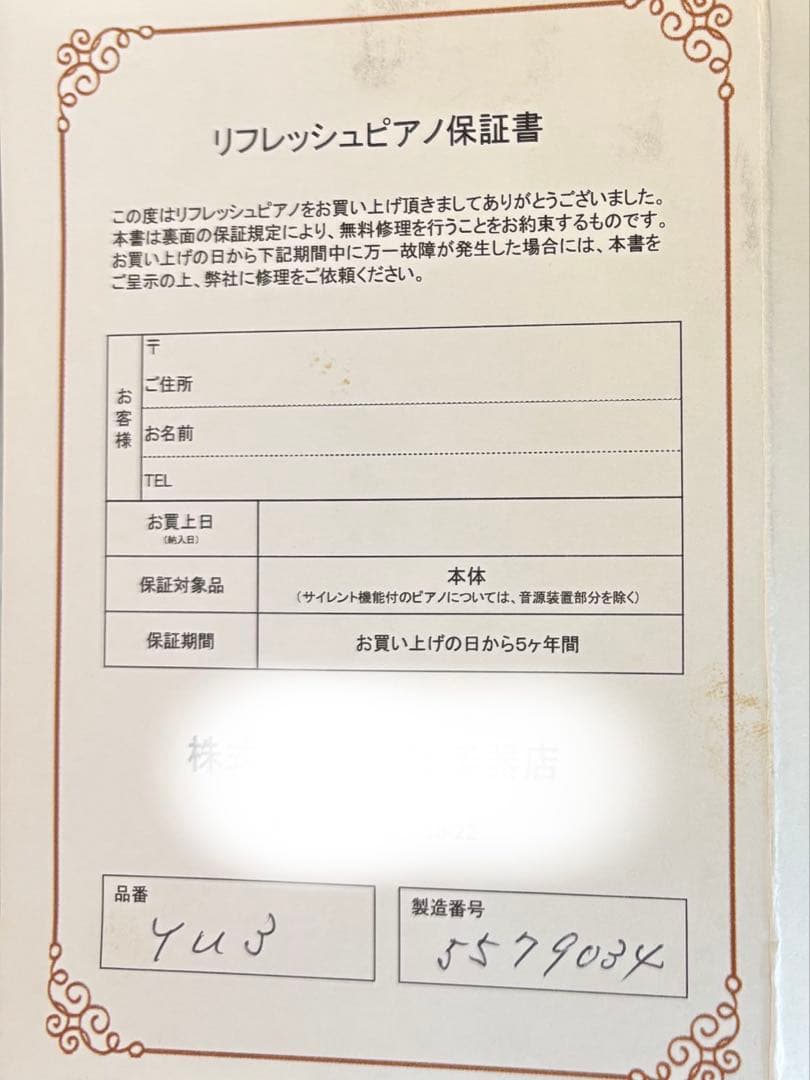 リフレッシュピアノ保証書
この度はリフレッシュピアノをお買い上げ頂きましてありがとうございました。
本書は裏面の保証規定により、無料修理を行うことをお約束するものです。
お買い上げの日から下記期間中に万一故障が発生した場合には、本書を
ご呈示の上、弊社に修理をご依頼ください。
お客様
〒
ご住所
お名前
TEL
お買上日
(納入日)
保証対象品
本体
(サイレント機能付のピアノについては、音源装置部分を除く)
保証期間
お買い上げの日から5ヶ年間
株式
器店
品番
YU3
製造番号
5579034